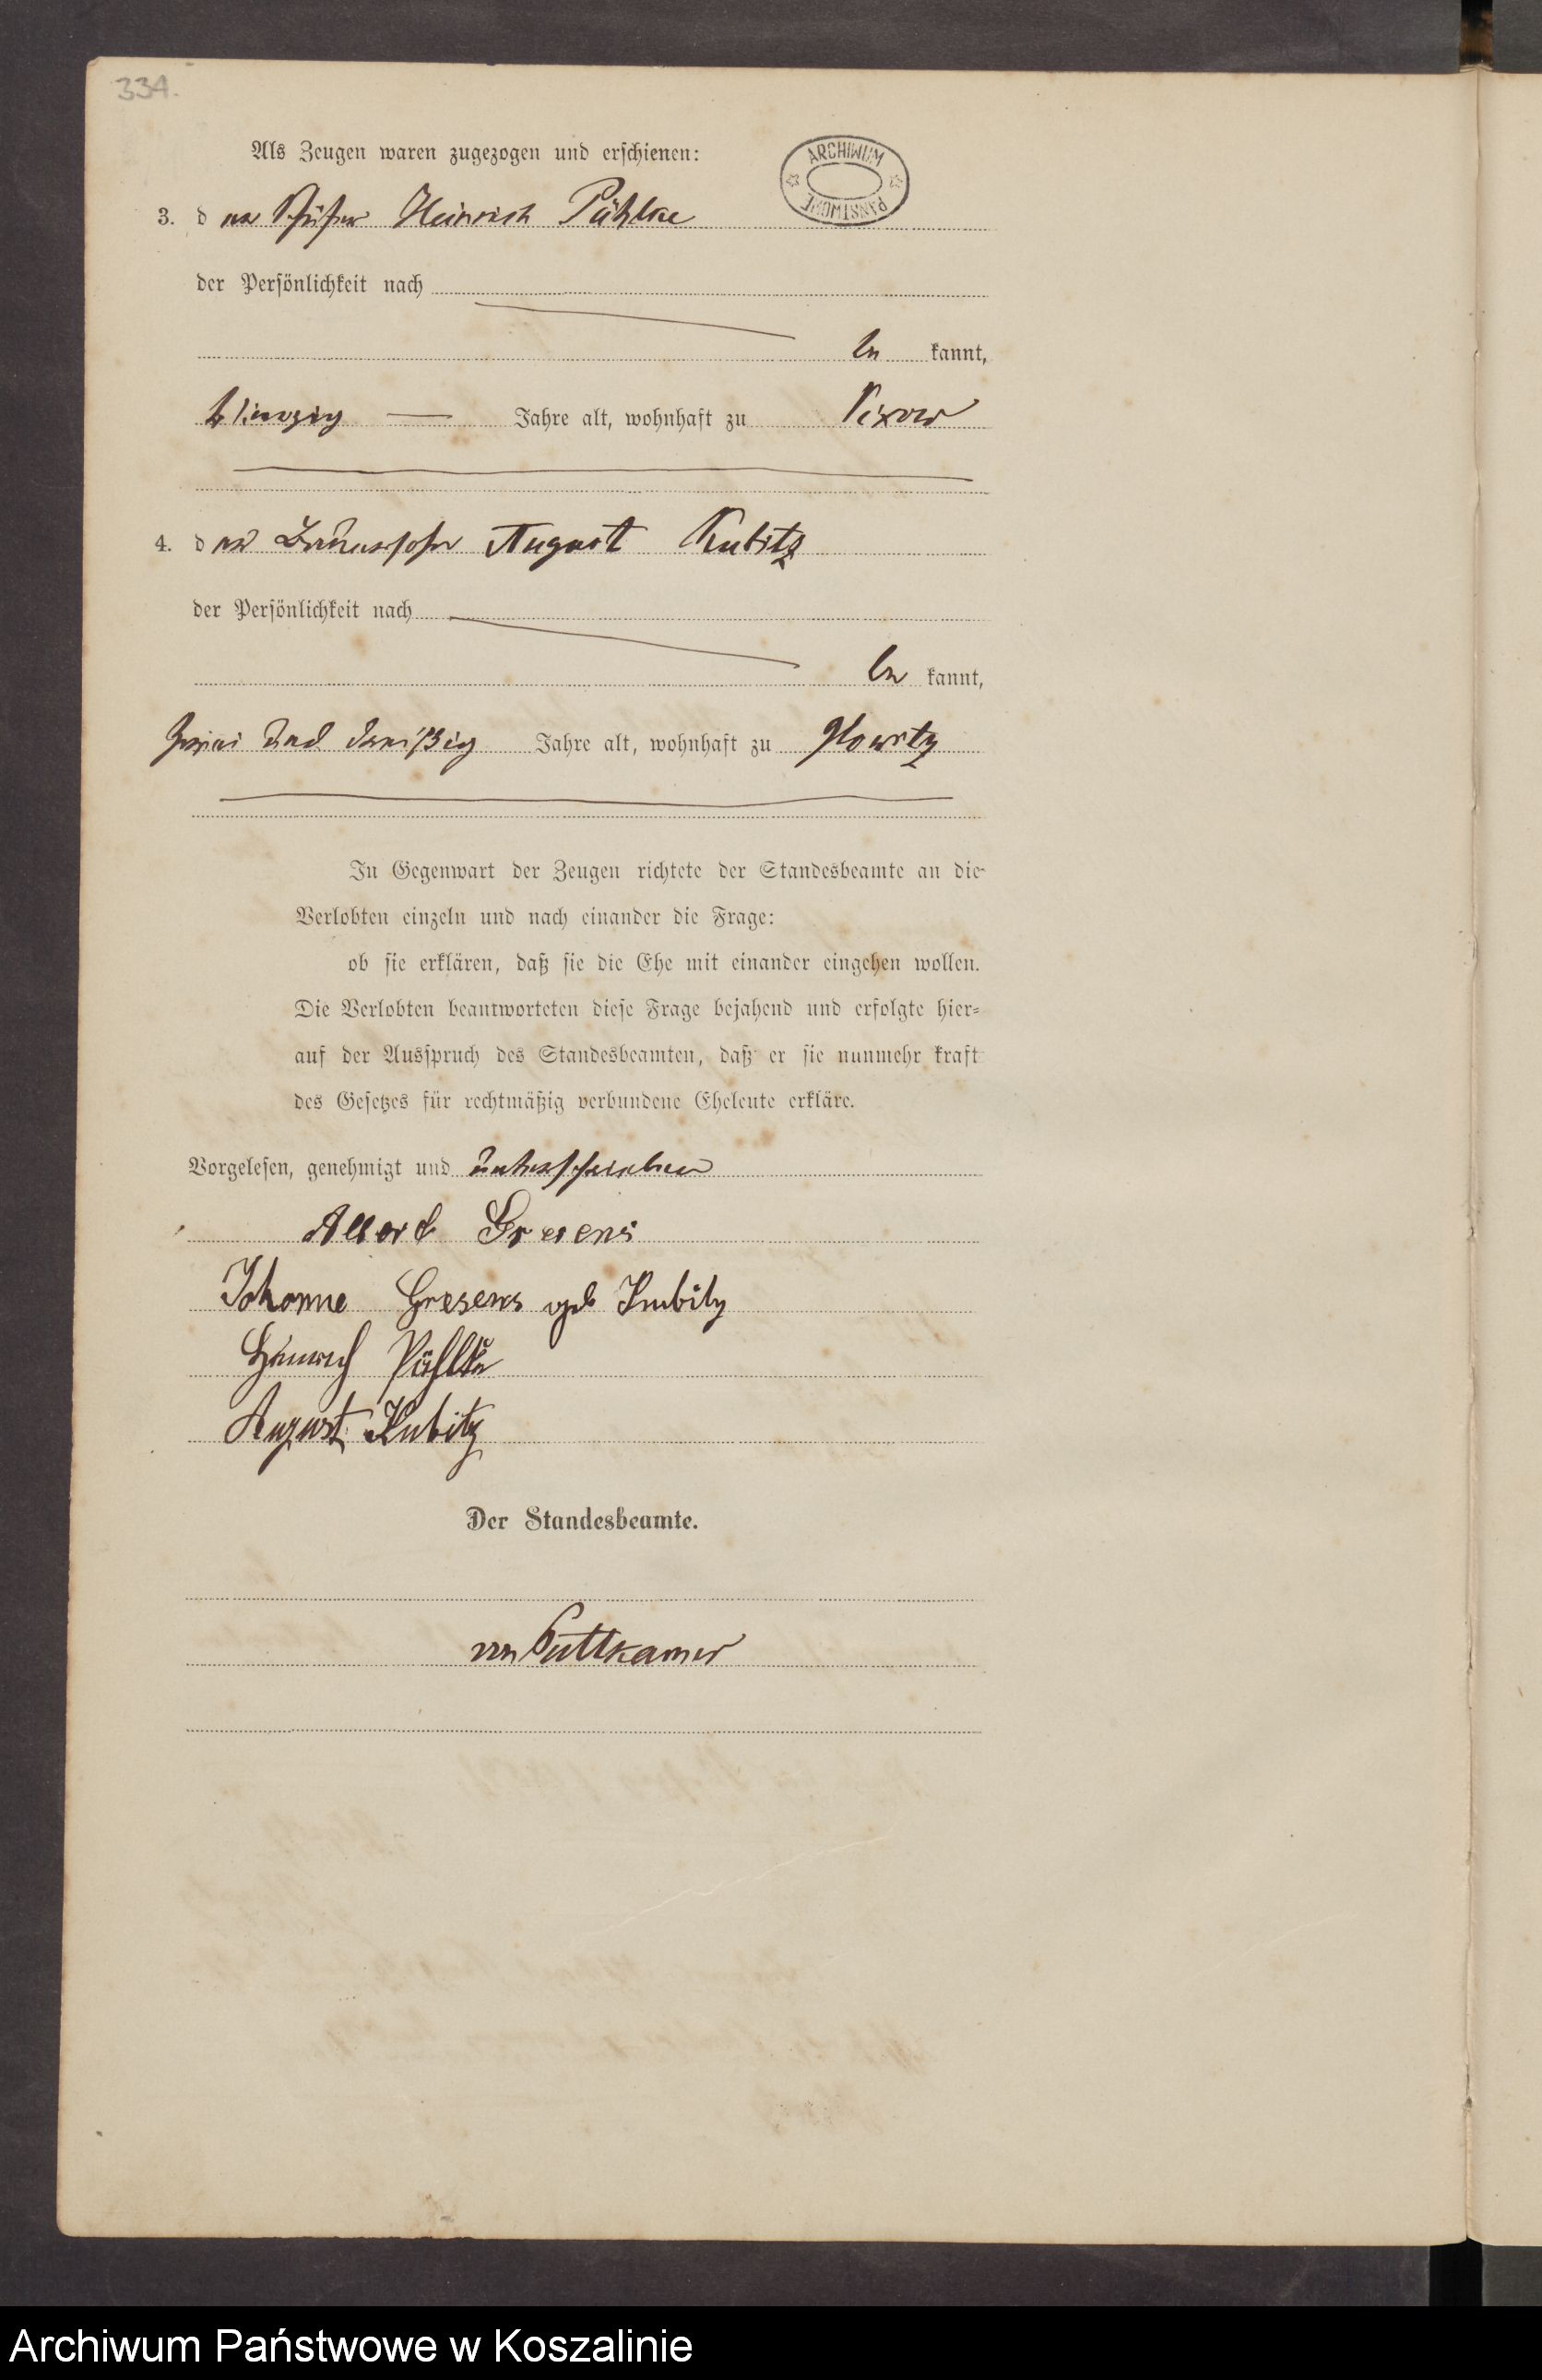 334.
Als Zeugen waren zugezogen und erschienen:
ARCHIWUM PAŃSTWOWE
3. der Schäfer Heinrich Pühlke
der Persönlichkeit nach
be kannt,
Jahre alt, wohnhaft zu Vixow
4. der August Kubitz
der Persönlichkeit nach
be kannt,
zwei und dreißig Jahre alt, wohnhaft zu Glowitz
In Gegenwart der Zeugen richtete der Standesbeamte an die
Verlobten einzeln und nach einander die Frage:
ob sie erklären, daß sie die Ehe mit einander eingehen wollen.
Die Verlobten beantworteten diese Frage bejahend und erfolgte hier=
auf der Ausspruch des Standesbeamten, daß er sie nunmehr kraft
des Gesetzes für rechtmäßig verbundene Eheleute erkläre.
Vorgelesen, genehmigt und unterschrieben
Gresens
Johanne Gresens geb Kubitz
Heinrich Pühlke
August Kubitz
Der Standesbeamte.
von Puttkamer
Archiwum Państwowe w Koszalinie